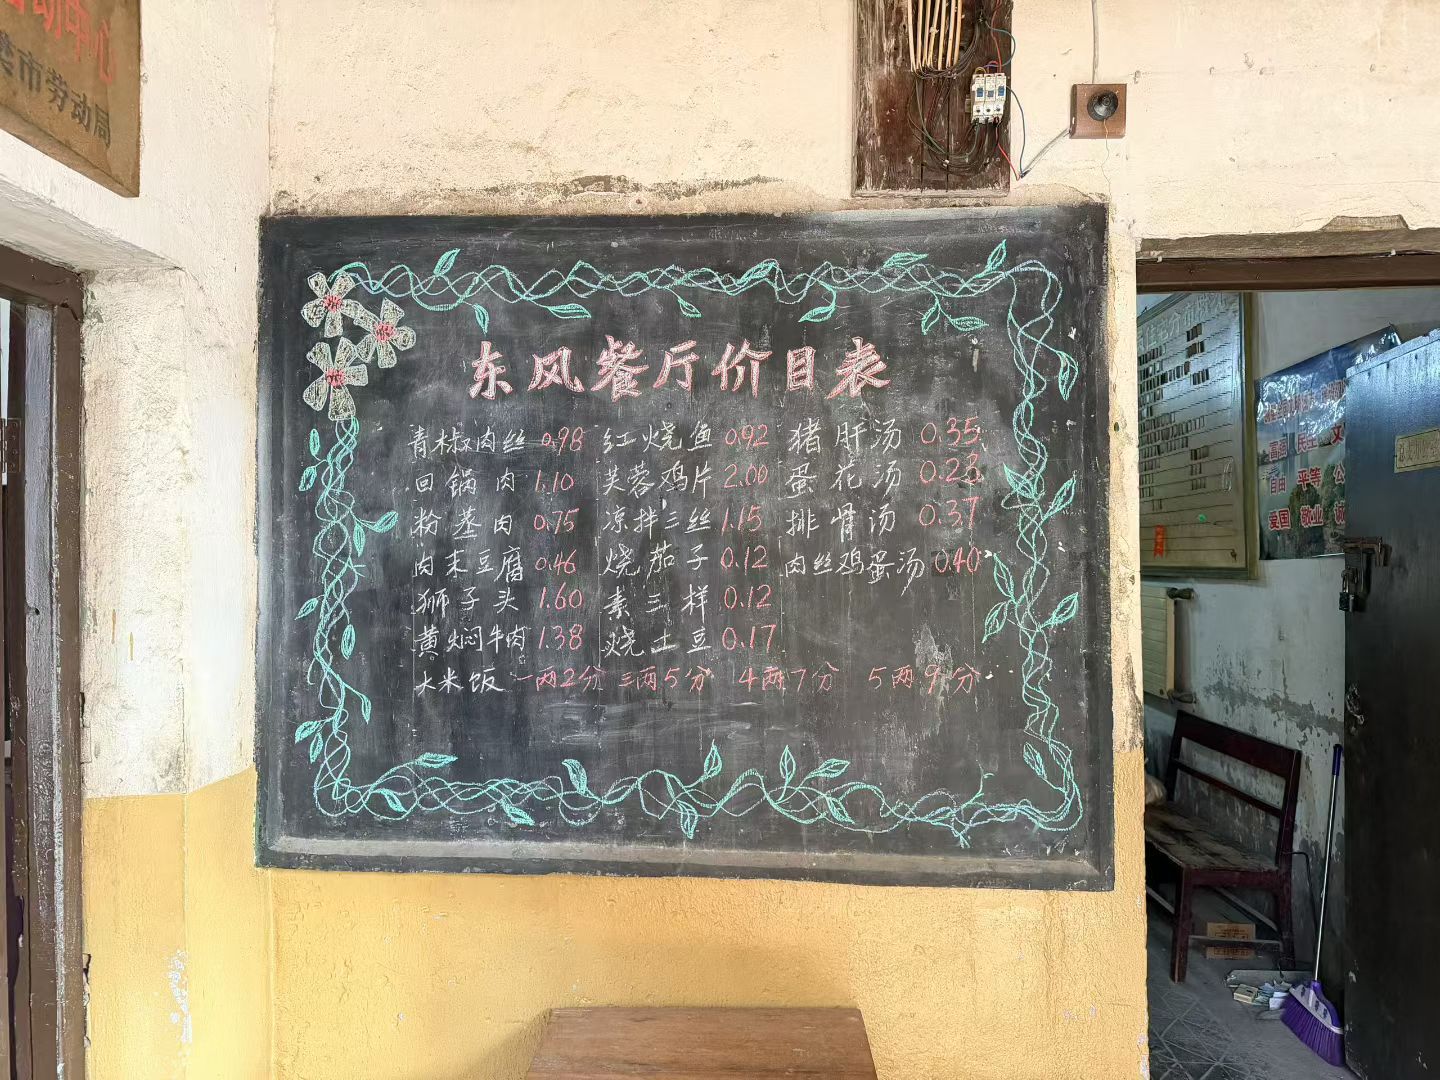 动中心
樊市劳动局
东风餐厅价目表
青椒肉丝 0.98 红烧鱼 0.92 猪肝汤 0.35
回锅肉 1.10 芙蓉鸡片 2.00 蛋花汤 0.23
粉蒸肉 0.75 凉拌三丝 1.15 排骨汤 0.37
肉末豆腐 0.46 烧茄子 0.12 肉丝鸡蛋汤 0.40
狮子头 1.60 素三样 0.12
黄焖牛肉 1.38 烧土豆 0.17
大米饭 一两2分 三两5分 4两7分 5两9分
富强 民主 文
自由 平等 公
爱国 敬业 诚